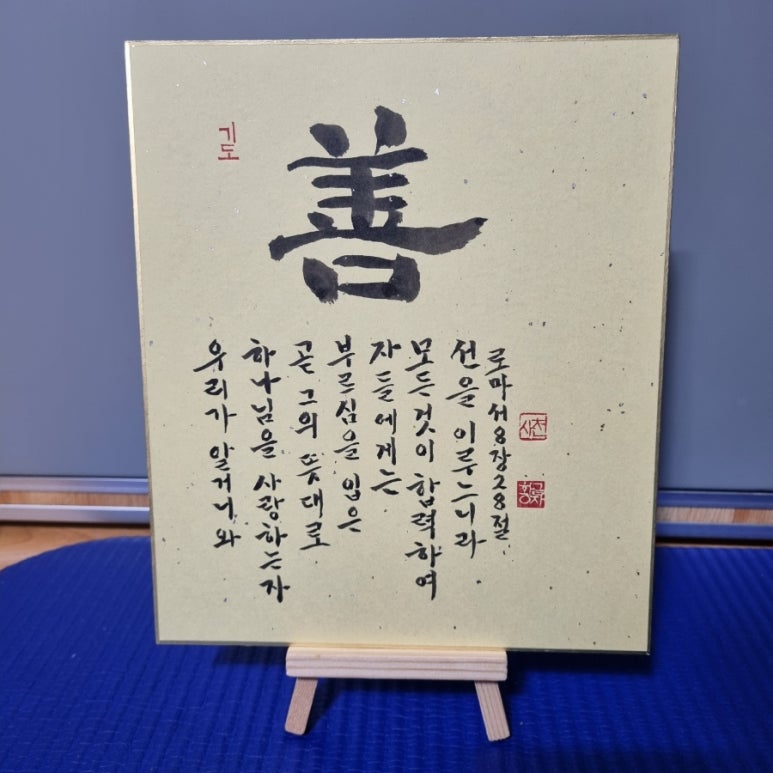 기도
善
우리가 알거니와
하나님을 사랑하는자
곧 그의 뜻대로
부르심을 입은
자들에게는
모든것이 합력하여
선을 이루느니라
로마서8장28절